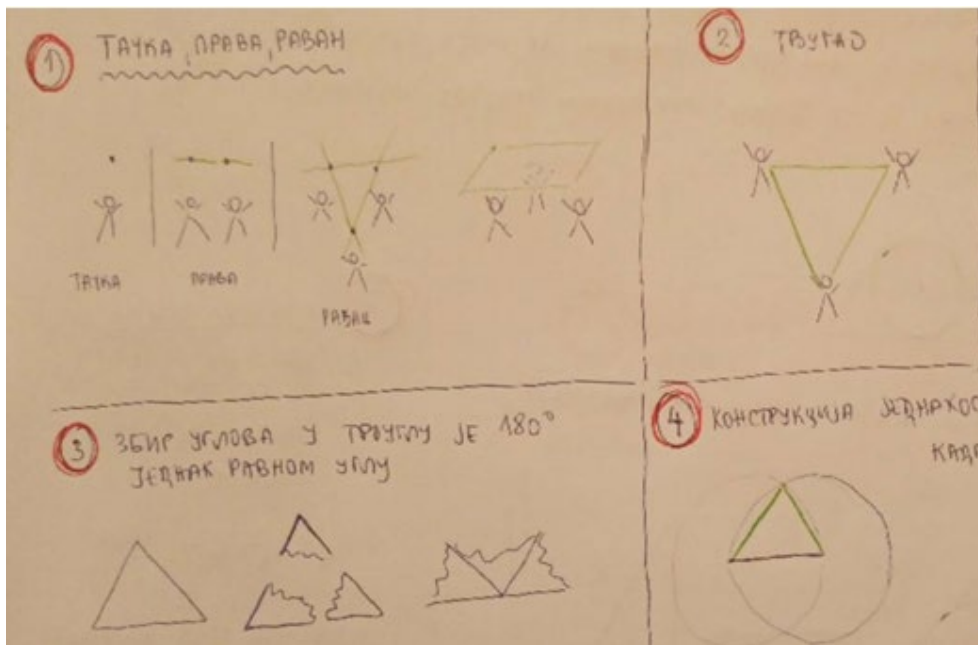 1) ТАЧКА, ПРАВА, РАВАН
ТАЧКА
ПРАВА
РАВАН
2 ТРУГАО
3 ЗБИР УГЛОВА У ТРОУГЛУ ЈЕ 180°
ЈЕДНАК РАВНОМ УГЛУ
4 КОНСТРУКЦИЈА